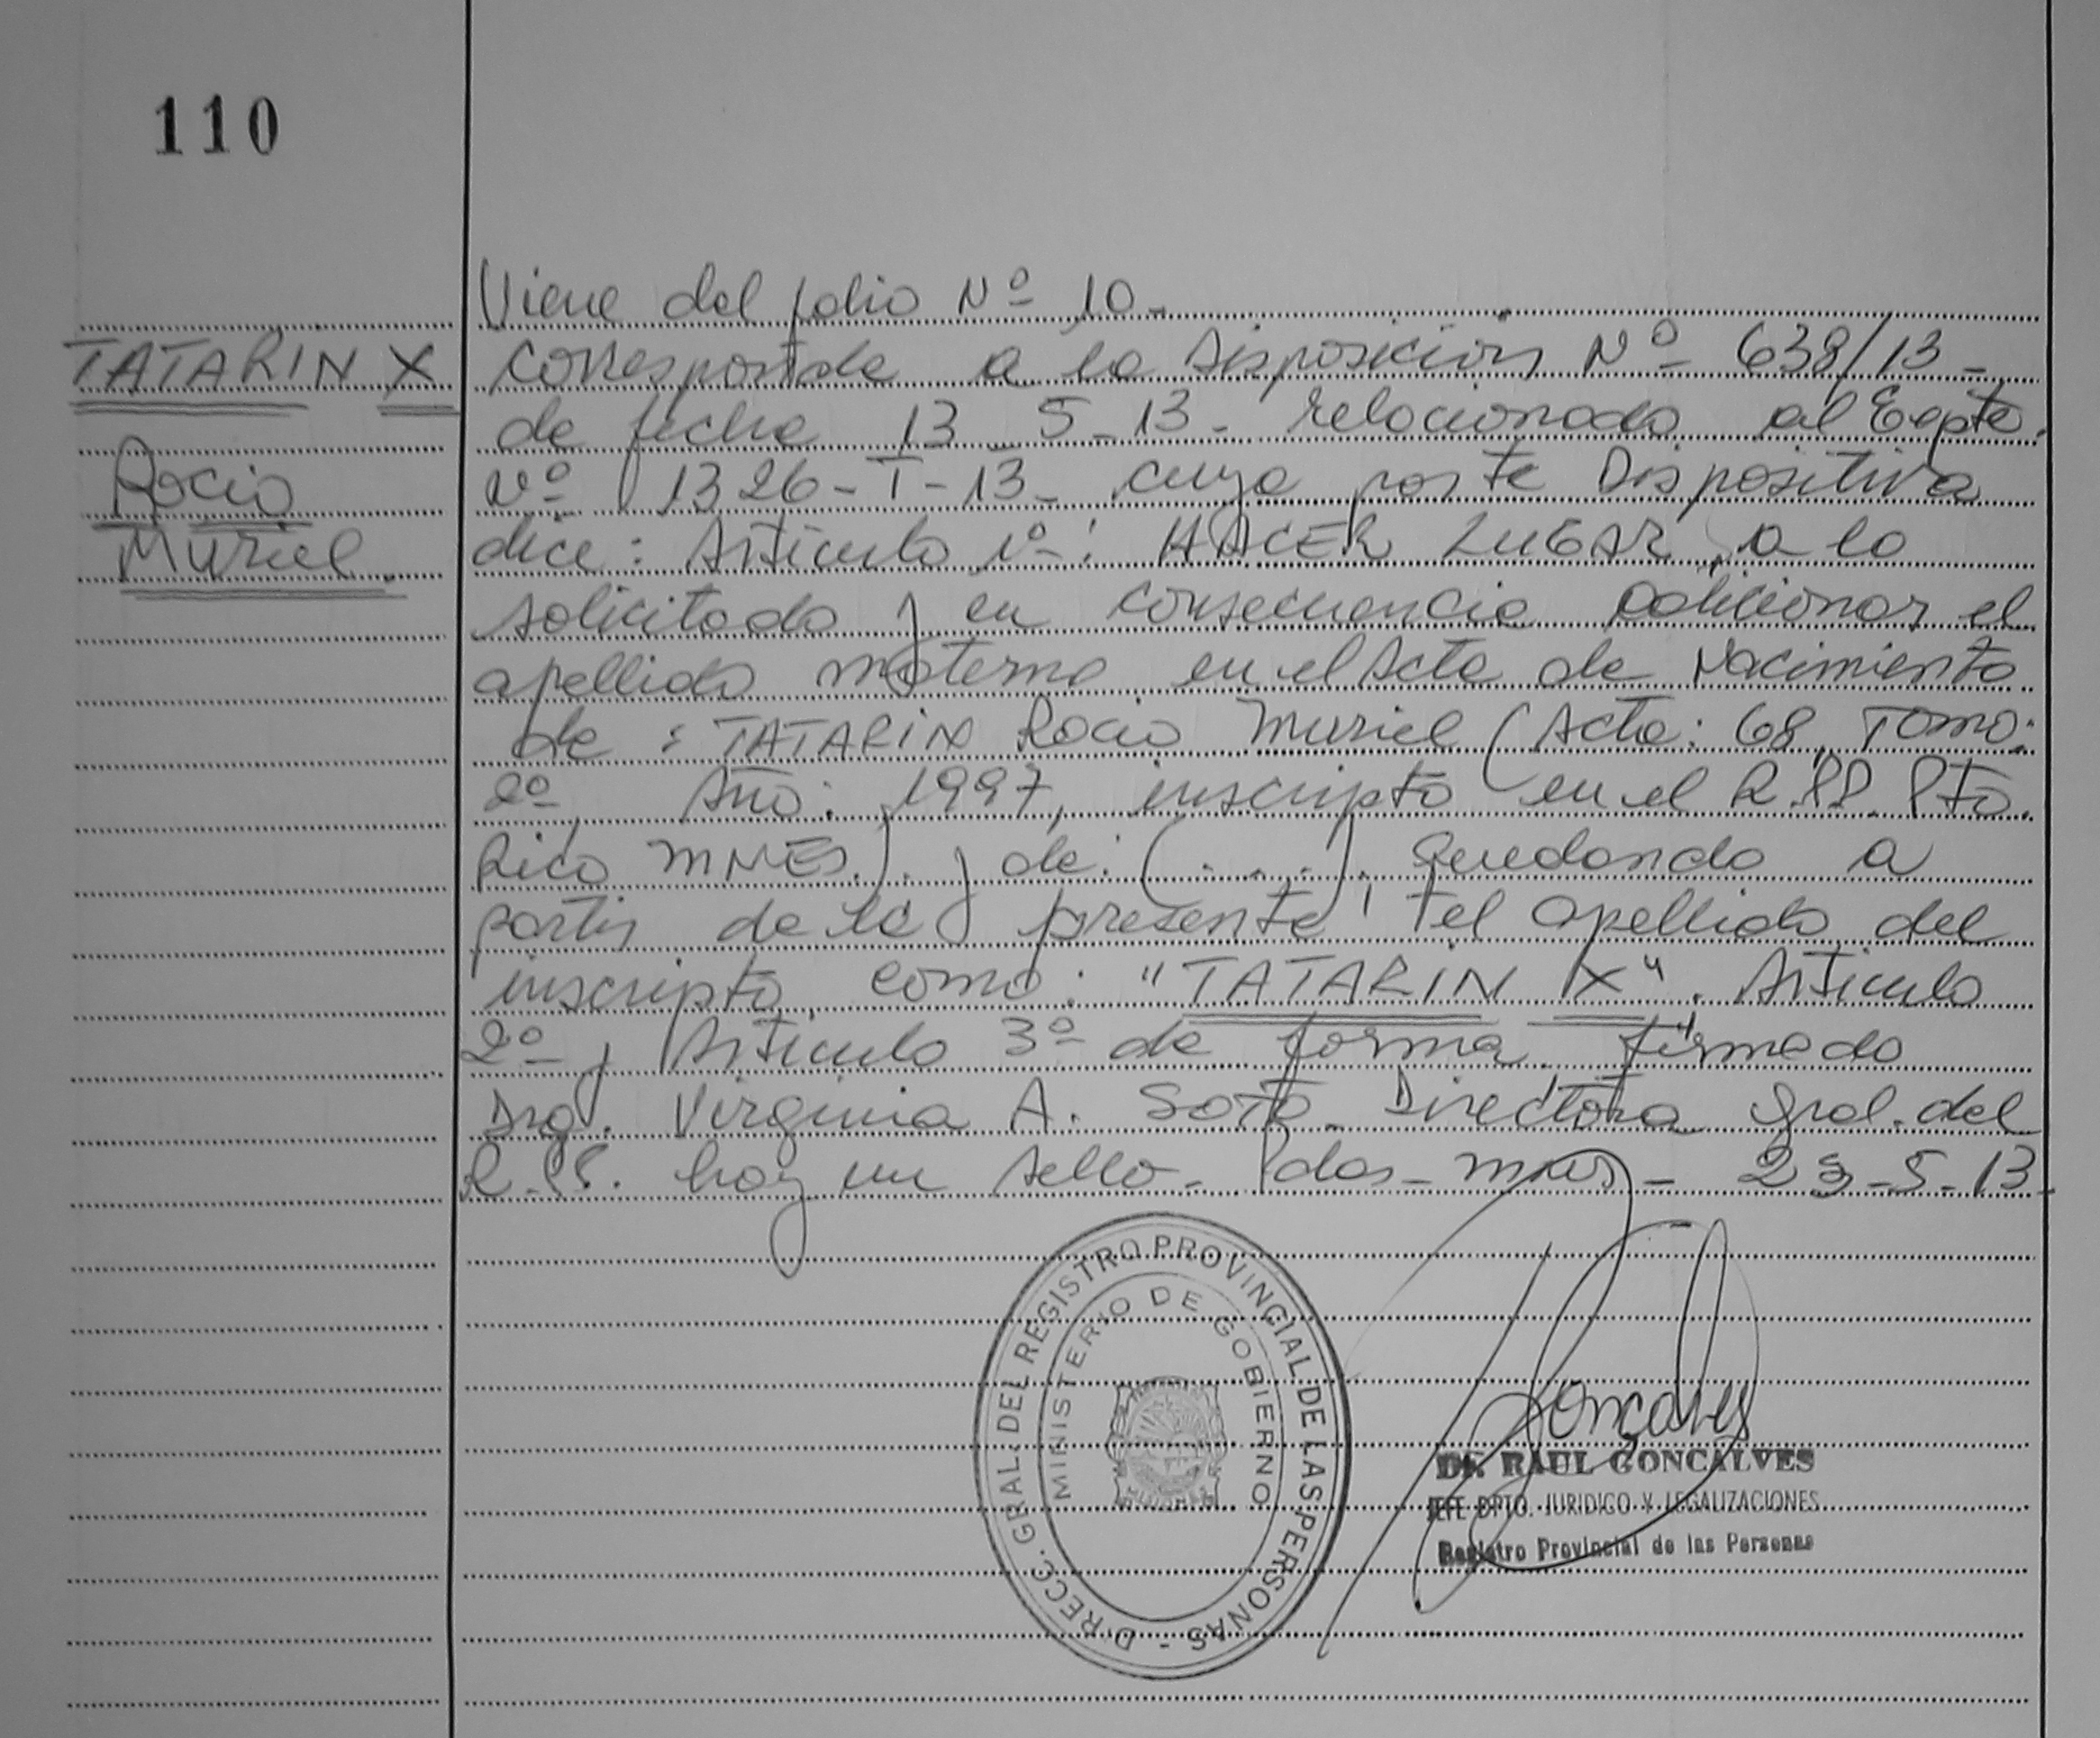 110
Viene del folio Nº 10-
TATARIN X
Rocio
Muriel.
Corresponde a la Disposición Nº 638/13-
de fecha 13-5-13- relacionado al Expte.
Nº 1326-T-13- cuya parte Dispositiva
dice: Artículo 1º: HACER LUGAR, a lo
solicitado y en consecuencia adicionar el
apellido materno en el Acta de Nacimiento
de: TATARIN Rocio Muriel (Acta: 68, Tomo:
2º, Año: 1997, inscripto en el R.P.P. Pto.
Rico MNES.). y de: (....). Quedando a
partir de la presente, el apellido del
inscripto como: "TATARIN X". Artículo
2º y Artículo 3º de forma. firmado
Dra. Virginia A. Soto. Directora Gral. del
R.P.P. hay un sello. Pdas-mnes- 23-5-13-
DIRECC. GRAL. DEL REGISTRO PROVINCIAL DE LAS PERSONAS -
MINISTERIO DE GOBIERNO
MISIONES
Gonçalves
Dr. RAUL GONCALVES
JEFE DPTO. JURIDICO Y LEGALIZACIONES
Registro Provincial de las Personas